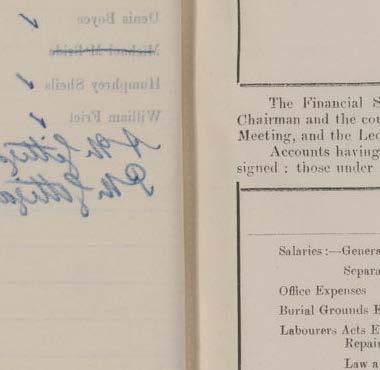 Denis Boyce
Michael McBride
Humphrey Sheils
William Friel
The Financial S
Chairman and the cou
Meeting, and the Lec
Accounts having
signed : those under
Salaries :—Genera
Separa
Office Expenses
Burial Grounds E
Labourers Acts E
Repair
Law a